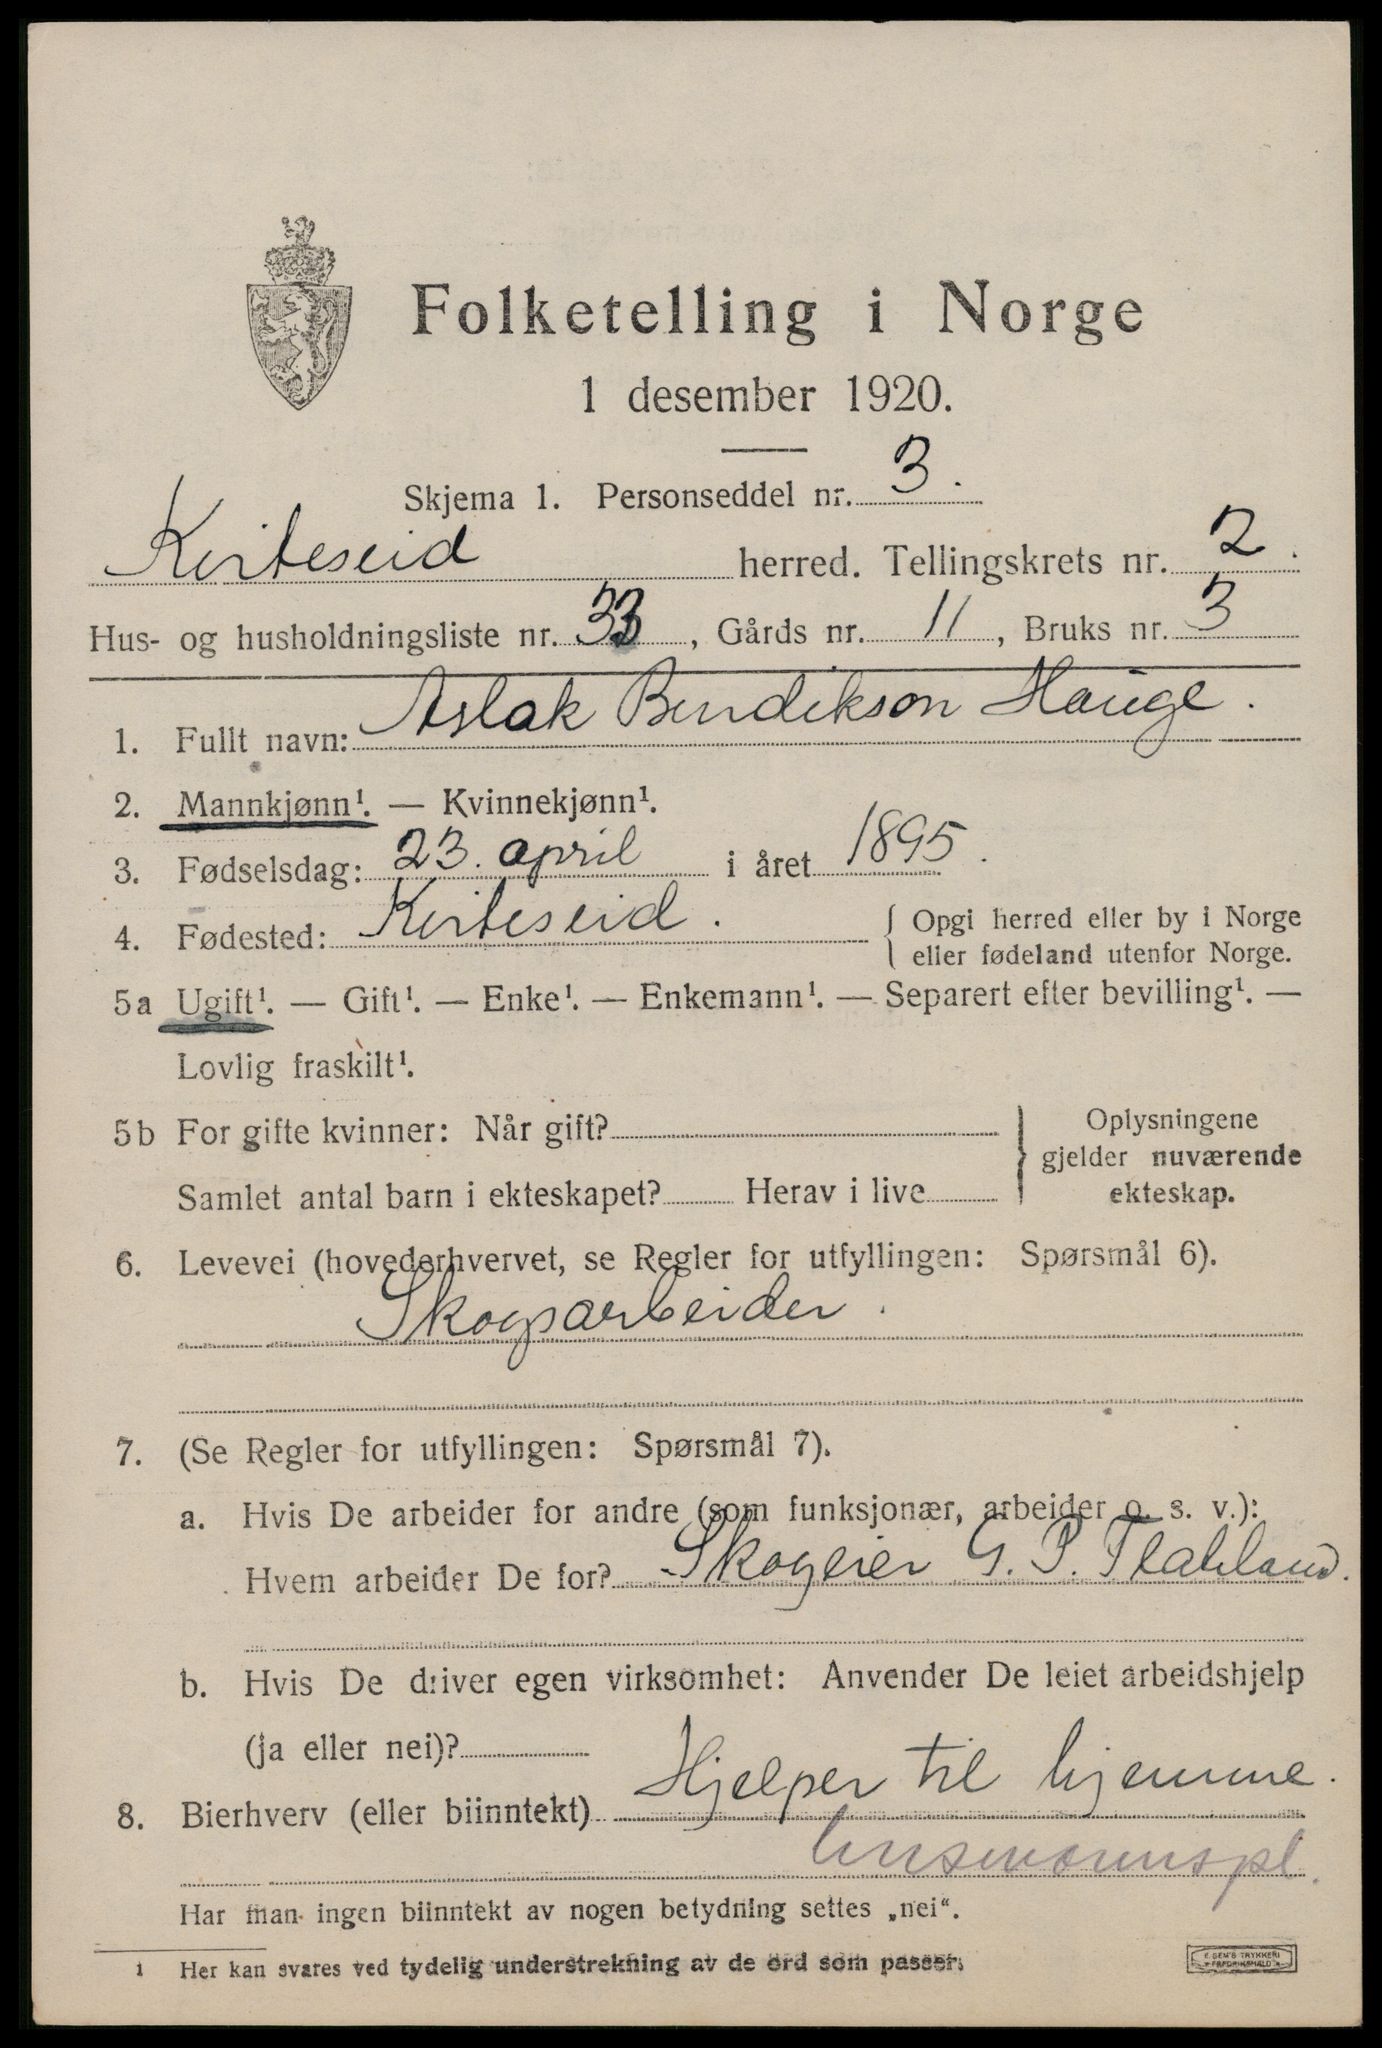 Folketelling i Norge
1 desember 1920.
Skjema 1. Personseddel nr. 3.
Kviteseid herred. Tellingskrets nr. 2.
Hus- og husholdningsliste nr. 33, Gårds nr. 11, Bruks nr. 3
1. Fullt navn: Aslak Bendikson Hauge.
2. Mannkjønn¹. — Kvinnekjønn¹.
3. Fødselsdag: 23. april i året 1895.
4. Fødested: Kviteseid. { Opgi herred eller by i Norge
eller fødeland utenfor Norge.
5a Ugift¹. — Gift¹. — Enke¹. — Enkemann¹. — Separert efter bevilling¹. —
Lovlig fraskilt¹.
5b For gifte kvinner: Når gift?
Samlet antal barn i ekteskapet? Herav i live
} Oplysningene
gjelder nuværende
ekteskap.
6. Levevei (hovederhvervet, se Regler for utfyllingen: Spørsmål 6).
Skogsarbeider.
7. (Se Regler for utfyllingen: Spørsmål 7).
a. Hvis De arbeider for andre (som funksjonær, arbeider o. s. v.):
Hvem arbeider De for? Skogeier G. P.
b. Hvis De driver egen virksomhet: Anvender De leiet arbeidshjelp
(ja eller nei)?
8. Bierhverv (eller biinntekt) Hjelper til hjemme.
husmannspl.
Har man ingen biinntekt av nogen betydning settes „nei“.
1 Her kan svares ved tydelig understrekning av de ord som passer.
E. SEM'S TRYKKERI
FREDRIKSHALD